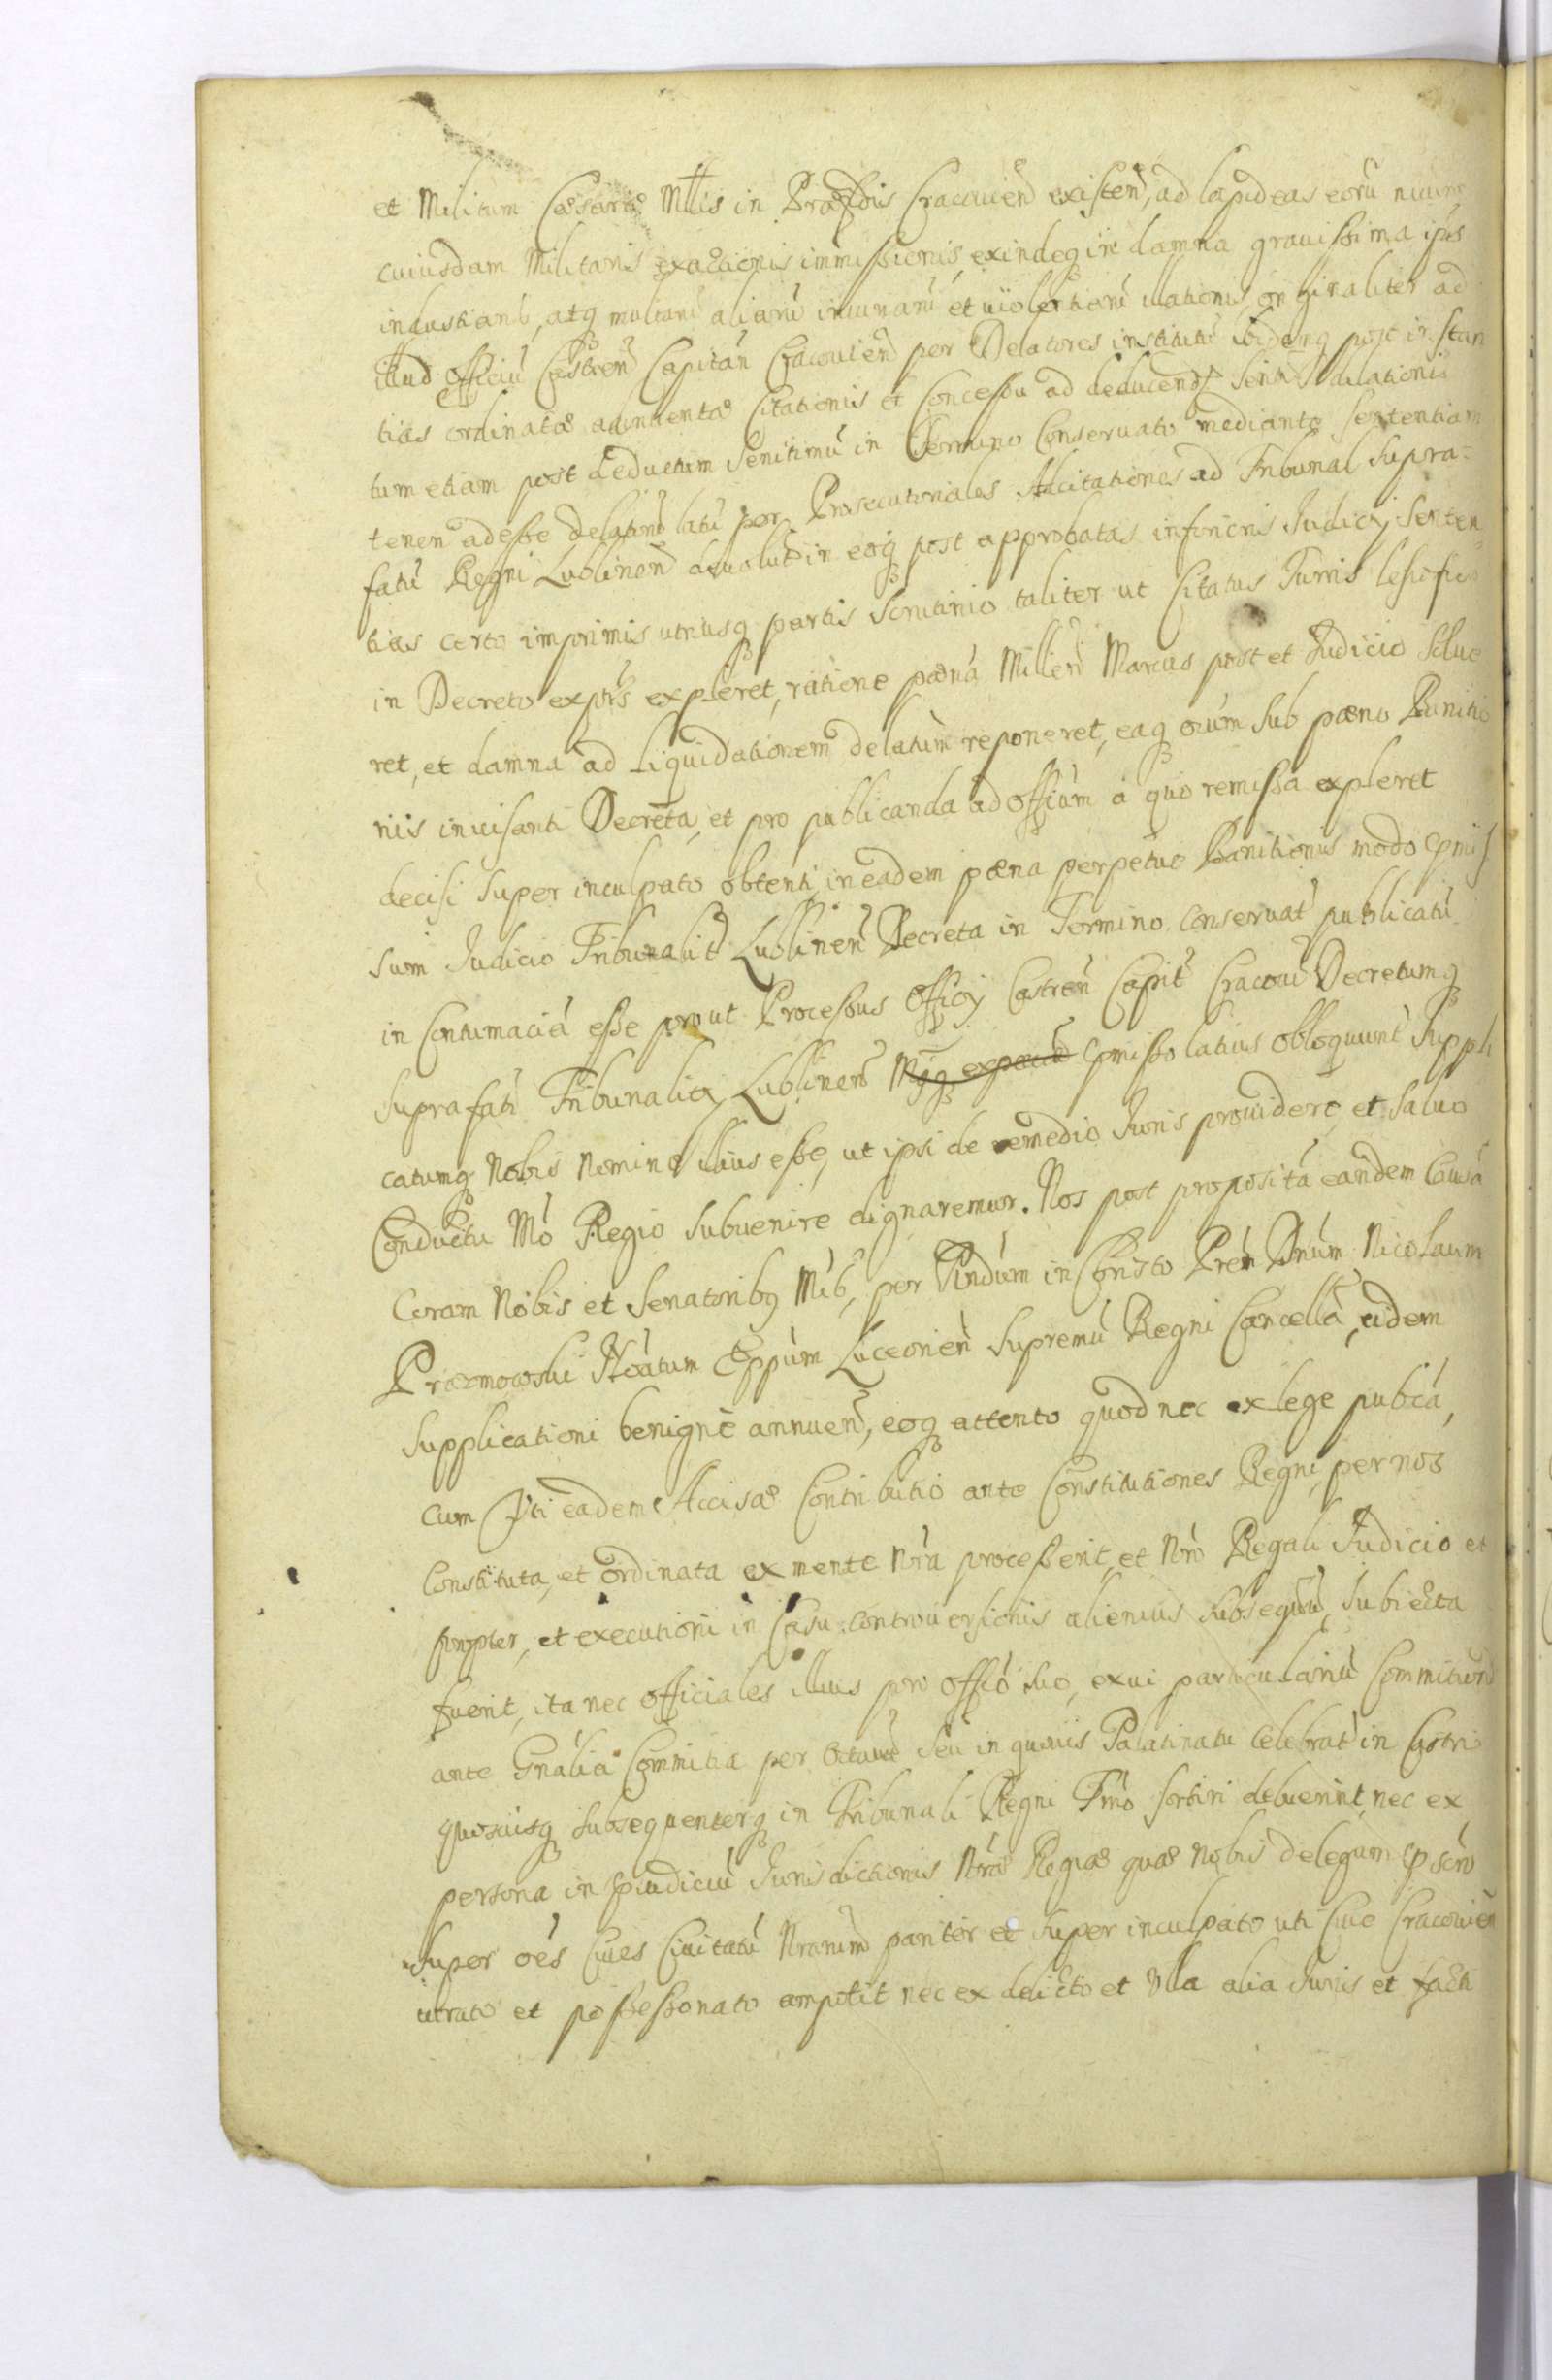 et Militum Cæsareæ Mttis in Præsdiis Cracovien existen, ad lapideas eorũ
cuiusdam Militaris exactionis immissionis, exindeq in damna gravissima ipis
industianb, atq multarũ aliarũ iniuriarũ et violentiarũ illationis, originaliter ad
illud Officiũ Castren Capitan Cracovien per Delatores institutũ ibidemq post instan
tias ordinatæ adinventæ Citationis et Concessu ad deducend delationis
tum etiam post deductum Scrutiniũ in Termino Conservato mediante Sententiam
tenen adesse delatorũ latũ per Prosecutoriales Adcitationes ad Tribunal Supra=
fatũ Regni Lublinen devolut in eoq post approbatas inferioris Judicij Senten
tias certo imprimis utriusq partis Scrutinio taliter ut Citatus Turris
in Decreto exprs expleret, ratione pœna Millen Marcas post et Judicio Solue
ret, et damna ad Liquidationem delatum reponeret, eaq oium sub pœna Banitio
nis inuisanti Decreta, et pro publicanda ad Offium a quo remissa expleret
decisi super inculpato obtenti in eadem pœna perpetuæ Banitionis modo pmis
sum Judicio Tribunalit Lublinen Decreta in Termino conservat publicatũ
in Contumaciá esse prout Processus Officij Castren Capit Cracovi Decretumq
Suprafati Tribunalit Lublinen pmisso latius obloquunt Suppli
catumq Nobis Nomine illius esse, ut ipsi de remedio Juris providere, et Salvo
Conductu Nrõ Regio Subvenire dignaremur. Nos post propositá eandem Causá
Coram Nobis et Senatoribq Nrib, per Rndum in Christo Prem Dnum Nicolaum
Prazmowski Nôatum Eppum Luceorien Supremũ Regni Cancella, eidem
Supplicationi benigne annuen, eoq attento quod nec ex lege pubcá,
cum Iti eadem Accisæ Contributio ante Constitutiones Regni, per nos
Constituta, et ordinata ex mente Nrá processerit, et Nrõ Regali Judicio et
simpler, et executioni in Casu controversionis alicuius subsequen, subiecta
fuerit, ita nec Officiales illius pro offió suo, ex vi particulariũ Commitiorũ
ante Gnália Commitia per Octavã seu in quovis Palatinatu celebrat in Castri
quosuisq subsequenterq in Tribunali Regni Frũo sortiri debuerint, nec ex
persona in pudiciũ Jurisdictionis Nræ Regiæ quæ Nobis de legum pscrõ
Super oés Cives Civitatũ Nrarum pariter et super inculpato uti Cive Cracovien
iurato et possessionato ampetit nec ex delicto et Ulla alia Juris et facti